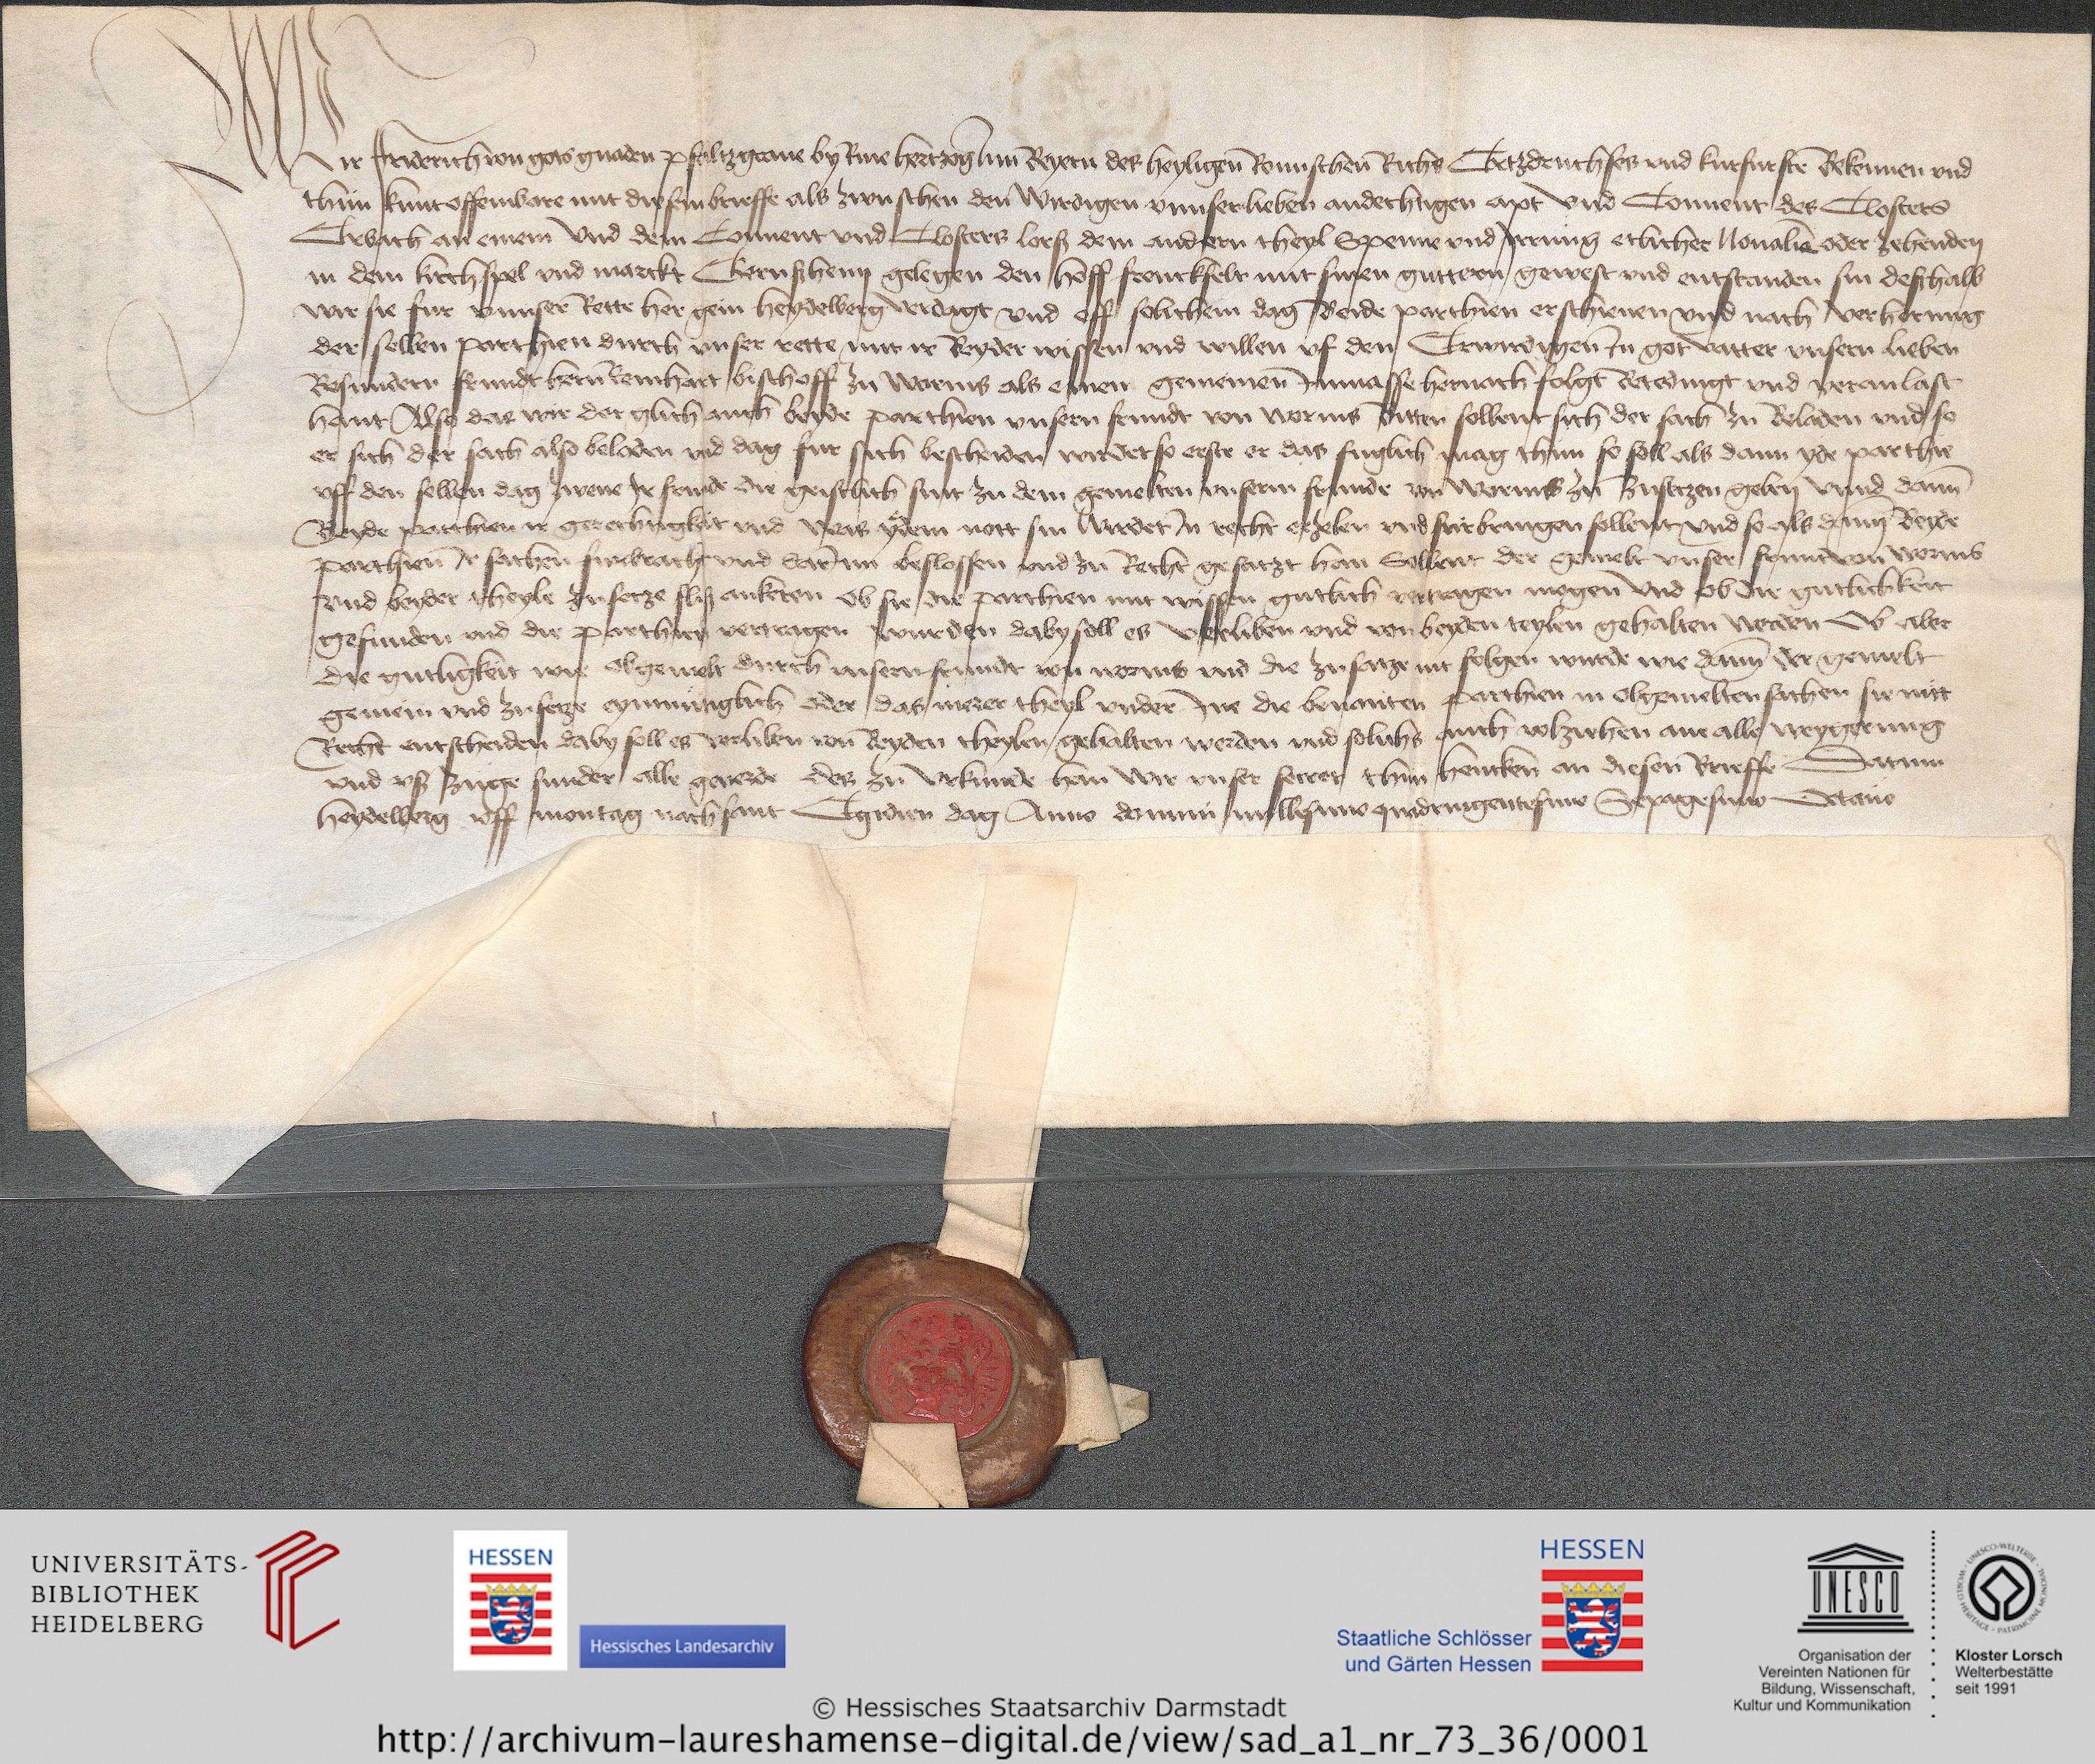 Wir Friderich von gots gnaden pfaltzgraue by Rine hertzog Inn Beyern des heyligen Romischen Richs Ertzdruchses vnd kurfurste Bekennen vnd
thun kunt offembare mit diesem brieffe als zwuschen den Wirdigen vnnser lieben andechtigen apt vnd Conuent des Closters
Erbach an einem vnd dem Conuent vnd Closters lorß dem andern theyl Spenne vnd Irrung etlicher Noualie oder zehenden
in dem kirchspel vnd marckt Gernßheim gelegen den hoff frenckfelt mit sinen guttern gewest vnd entstanden sin deßhalb
wir sie fur vnnser Rette her gein heydelberg verdagt vnd vff solichem dag Beide parthien erschienen vnd nach verhorung
der selben parthien durch vnser rette mit ir Beyder wissen vnd willen vf den Erwirdigen In got vatter vnsern lieben
Besundern frundt hern Reinhart bischoff zu Worms als einen gemeinen Inmasse hernach folgt Beteidingt vnd veranlast
hant Also das wir der glich auch beyde parthien vnsern frundt von worms bitten sollent sich der sach zu Beladen vnd so
er sich der sach also beladen vnd dag fur sich bescheiden wirdet so erste er das fuglich mag thun so soll als dann yde parthie
vff den selben dag zwene Ir frunde die geistlich sint zu dem gemelten vnserm frunde von Worms zu zusetzen geben vnd dann
Beyde parthien ir gerechtigkeit vnd was ydem nott sin wirdet In recht erzelen vnd furbringen sollent vnd so als dann beyde
parthien Ir sachen furbracht vnd darinn beslossen vnd zu Recht gesatzt han Sollent der gemelt vnser frunt von worms
vnd beyder theyle zusetze fliß ankeren ob sie die parthien mit wissen gutlich vertragen mogen vnd ob die gutlichkeit
gefunden vnd die parthien vertragen wurden daby soll es verliben vnd von beyden teylen gehalten werden Ob aber
die gutligkeit wie obgemelt durch vnsern frundt von worms vnd die zusatze nit folgen wurde wie dann der gemelt
gemein vnd zusetze eynmutiglich oder das merer theyl vnder Ine die benanten parthien in obgemelten sachen sie mit
Recht entscheiden daby soll es verliben von Beyden theylen gehalten werden vnd solichs auch volzichen ane alle weygerung
vnd vß zuge sunder alle geuerde Des zu vrkunde han wir vnser secret thun hencken an diesen Brieffe Datum
heydelberg vff montag nach sant Egidien dag Anno domini millesimo quadringentesimo Sexagesimo Octauo
UNIVERSITÄTS-
BIBLIOTHEK
HEIDELBERG
HESSEN
Hessisches Landesarchiv
HESSEN
Staatliche Schlösser
und Gärten Hessen
UNESCO
Organisation der
Vereinten Nationen für
Bildung, Wissenschaft,
Kultur und Kommunikation
Kloster Lorsch
Welterbestätte
seit 1991
© Hessisches Staatsarchiv Darmstadt
http://archivum-laureshamense-digital.de/view/sad_a1_nr_73_36/0001